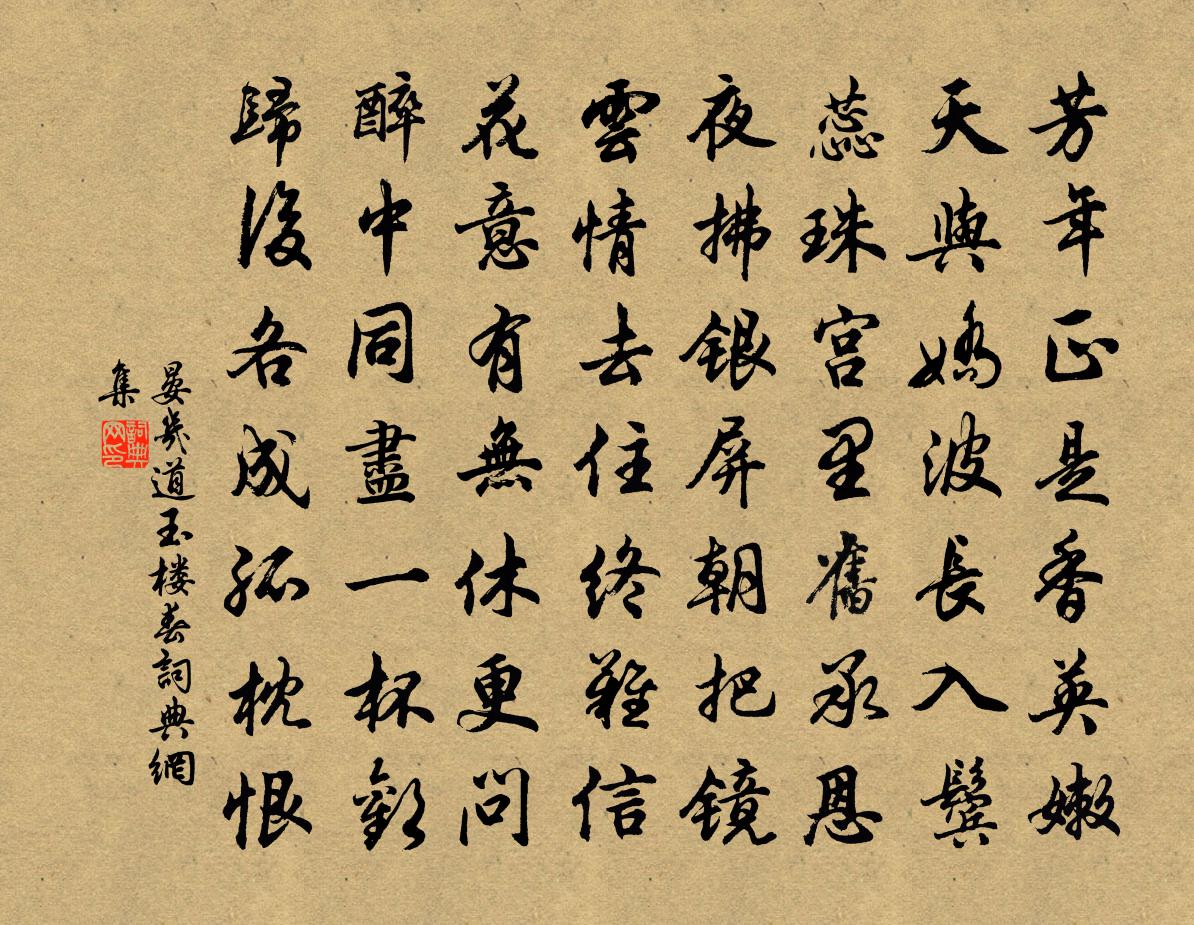 芳年正是香英嫩
天與嬌波長入鬢
蕊珠宮里舊承恩
夜拂銀屏朝把鏡
雲情去住終難信
花意有無休更問
醉中同盡一杯歡
歸後各成孤枕恨
晏幾道玉楼春詞典網
集
詞典网印